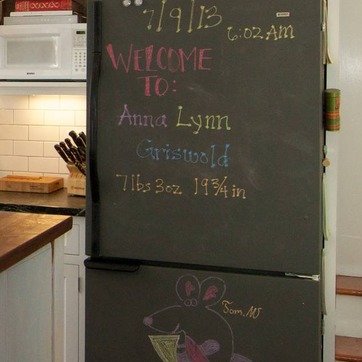 7/9/13
6:02 AM
WELCOME
TO:
Anna Lynn
Griswold
7 lbs 3 oz 19 3/4 in